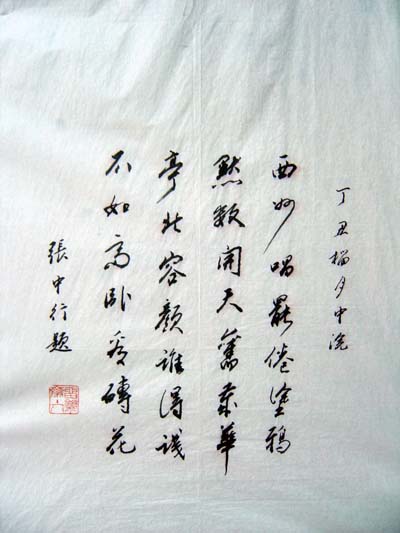 丁丑榴月中浣
西妙唱罷倦塗鴉
默數開天舊夢華
亭北容顏誰得識
不如高臥看磚花
張中行題